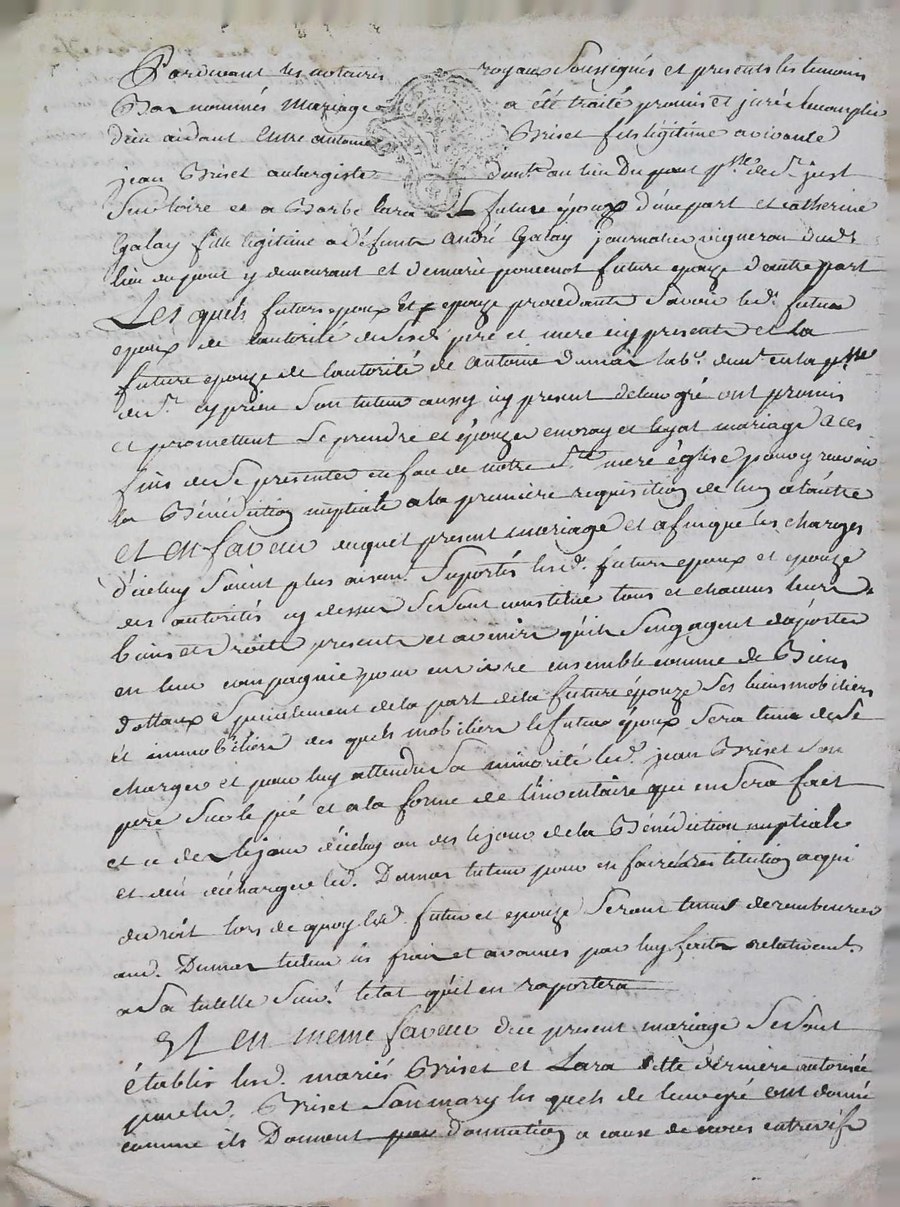 Pardevant les notaires royaux soussignés et presents les temoins
Bas nommés mariage a été traité promis et juré s'accomplir
dieu aidant Entre antoine Briset fils légitime a vivants
jean Briset aubergiste demt. au lieu Dupont psse. de st. just
Sur loire et a Barbe Lara future époux d'une part et catherine
Galay fille legitime a défunt André Galay journalier vigneron dud.
lieu dupont y demeurant et de marie future epouze d'autre part
Les quels futurs epoux Et epouze procedants Savoir led. futur
epoux de lautorité de sesd. père et mere icy presents et la
future epouze de lautorité de antoine Dumas lab. demt. en la psse
de st. cyprien Son tuteur aussy icy present deleur gré ont promis
et promettent Se prendre et épouzer en vray et legat mariage a ces
fins de se presenter en face de notre ste. mere église pour y recevoir
la Bénédiction nuptiale a la première requisition de lun a lautre
et en faveur duquel present mariage et afinque les charges
d'iceluy soient plus aisem. Suportés lesd. futurs epoux et epouze
des autorités cy dessus se sont constitué tous et chacuns leurs
biens et droits presents et avenir qu'ils s'engagent daporter
en leur compagnie pour en vivre ensemble comme de Biens
dottaux Specialement de la part de la future épouze Ses biens mobiliers
et immobiliers des quels mobiliers le futur époux Sera tenu de Se
charger et pour luy attendu Sa minorité led. jean Briset Son
pere Sur le pié et a la forme de l'inventaire qui en Sera fait
et ce de le jour d'icluy ou des le jour de la Bénédiction nuptiale
et den décharger led. Dumas tuteur pour en faire la restitution a qui
de droit lors de quoy lesd. futur et epouze Seront tenus de rembourser
aud. Dumas tuteur les frais et avances par luy faits relativemt.
a Sa tutelle Suivt. letat qu'il en raportera
Et en meme faveur dece present mariage Se Sont
établis lesd. mariés Briset et Lara cette dernière autorisée
pardud. Briset Son mary les quels de leur gré ont donné
comme ils Donnent par donnation a cause de noces entrevifs